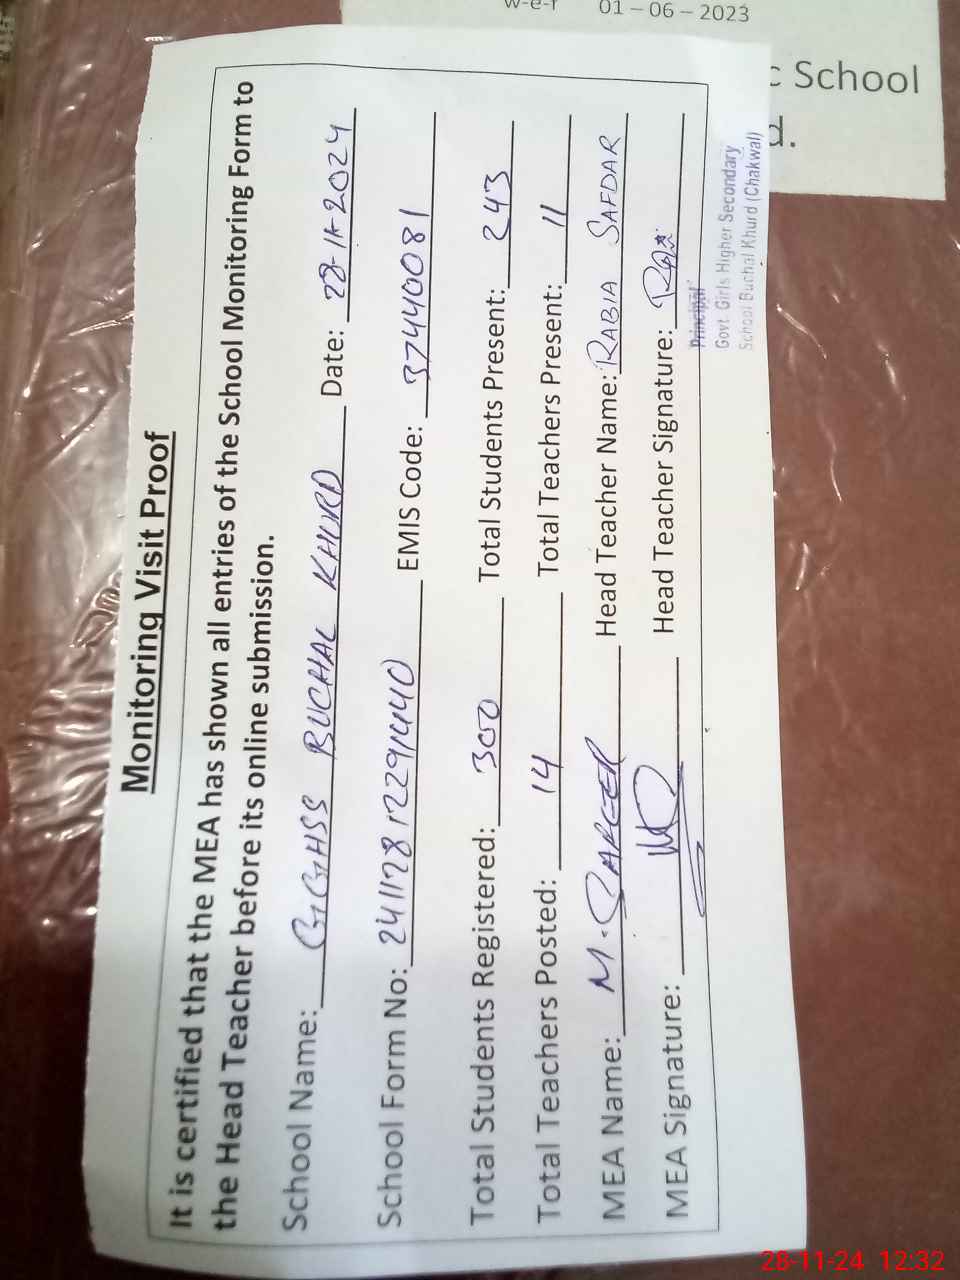 w-e-f 01 – 06 – 2023
c School
d.
Monitoring Visit Proof
It is certified that the MEA has shown all entries of the School Monitoring Form to
the Head Teacher before its online submission.
School Name: GGHSS BUCHAL KHURD Date: 28-11-2024
School Form No: EMIS Code: 37440081
Total Students Registered: 300 Total Students Present: 243
Total Teachers Posted: 14 Total Teachers Present: 11
MEA Name: M. Head Teacher Name: RABIA SAFDAR
MEA Signature: Head Teacher Signature:
Principal
Govt. Girls Higher Secondary
School Buchal Khurd (Chakwal)
28-11-24 12:32